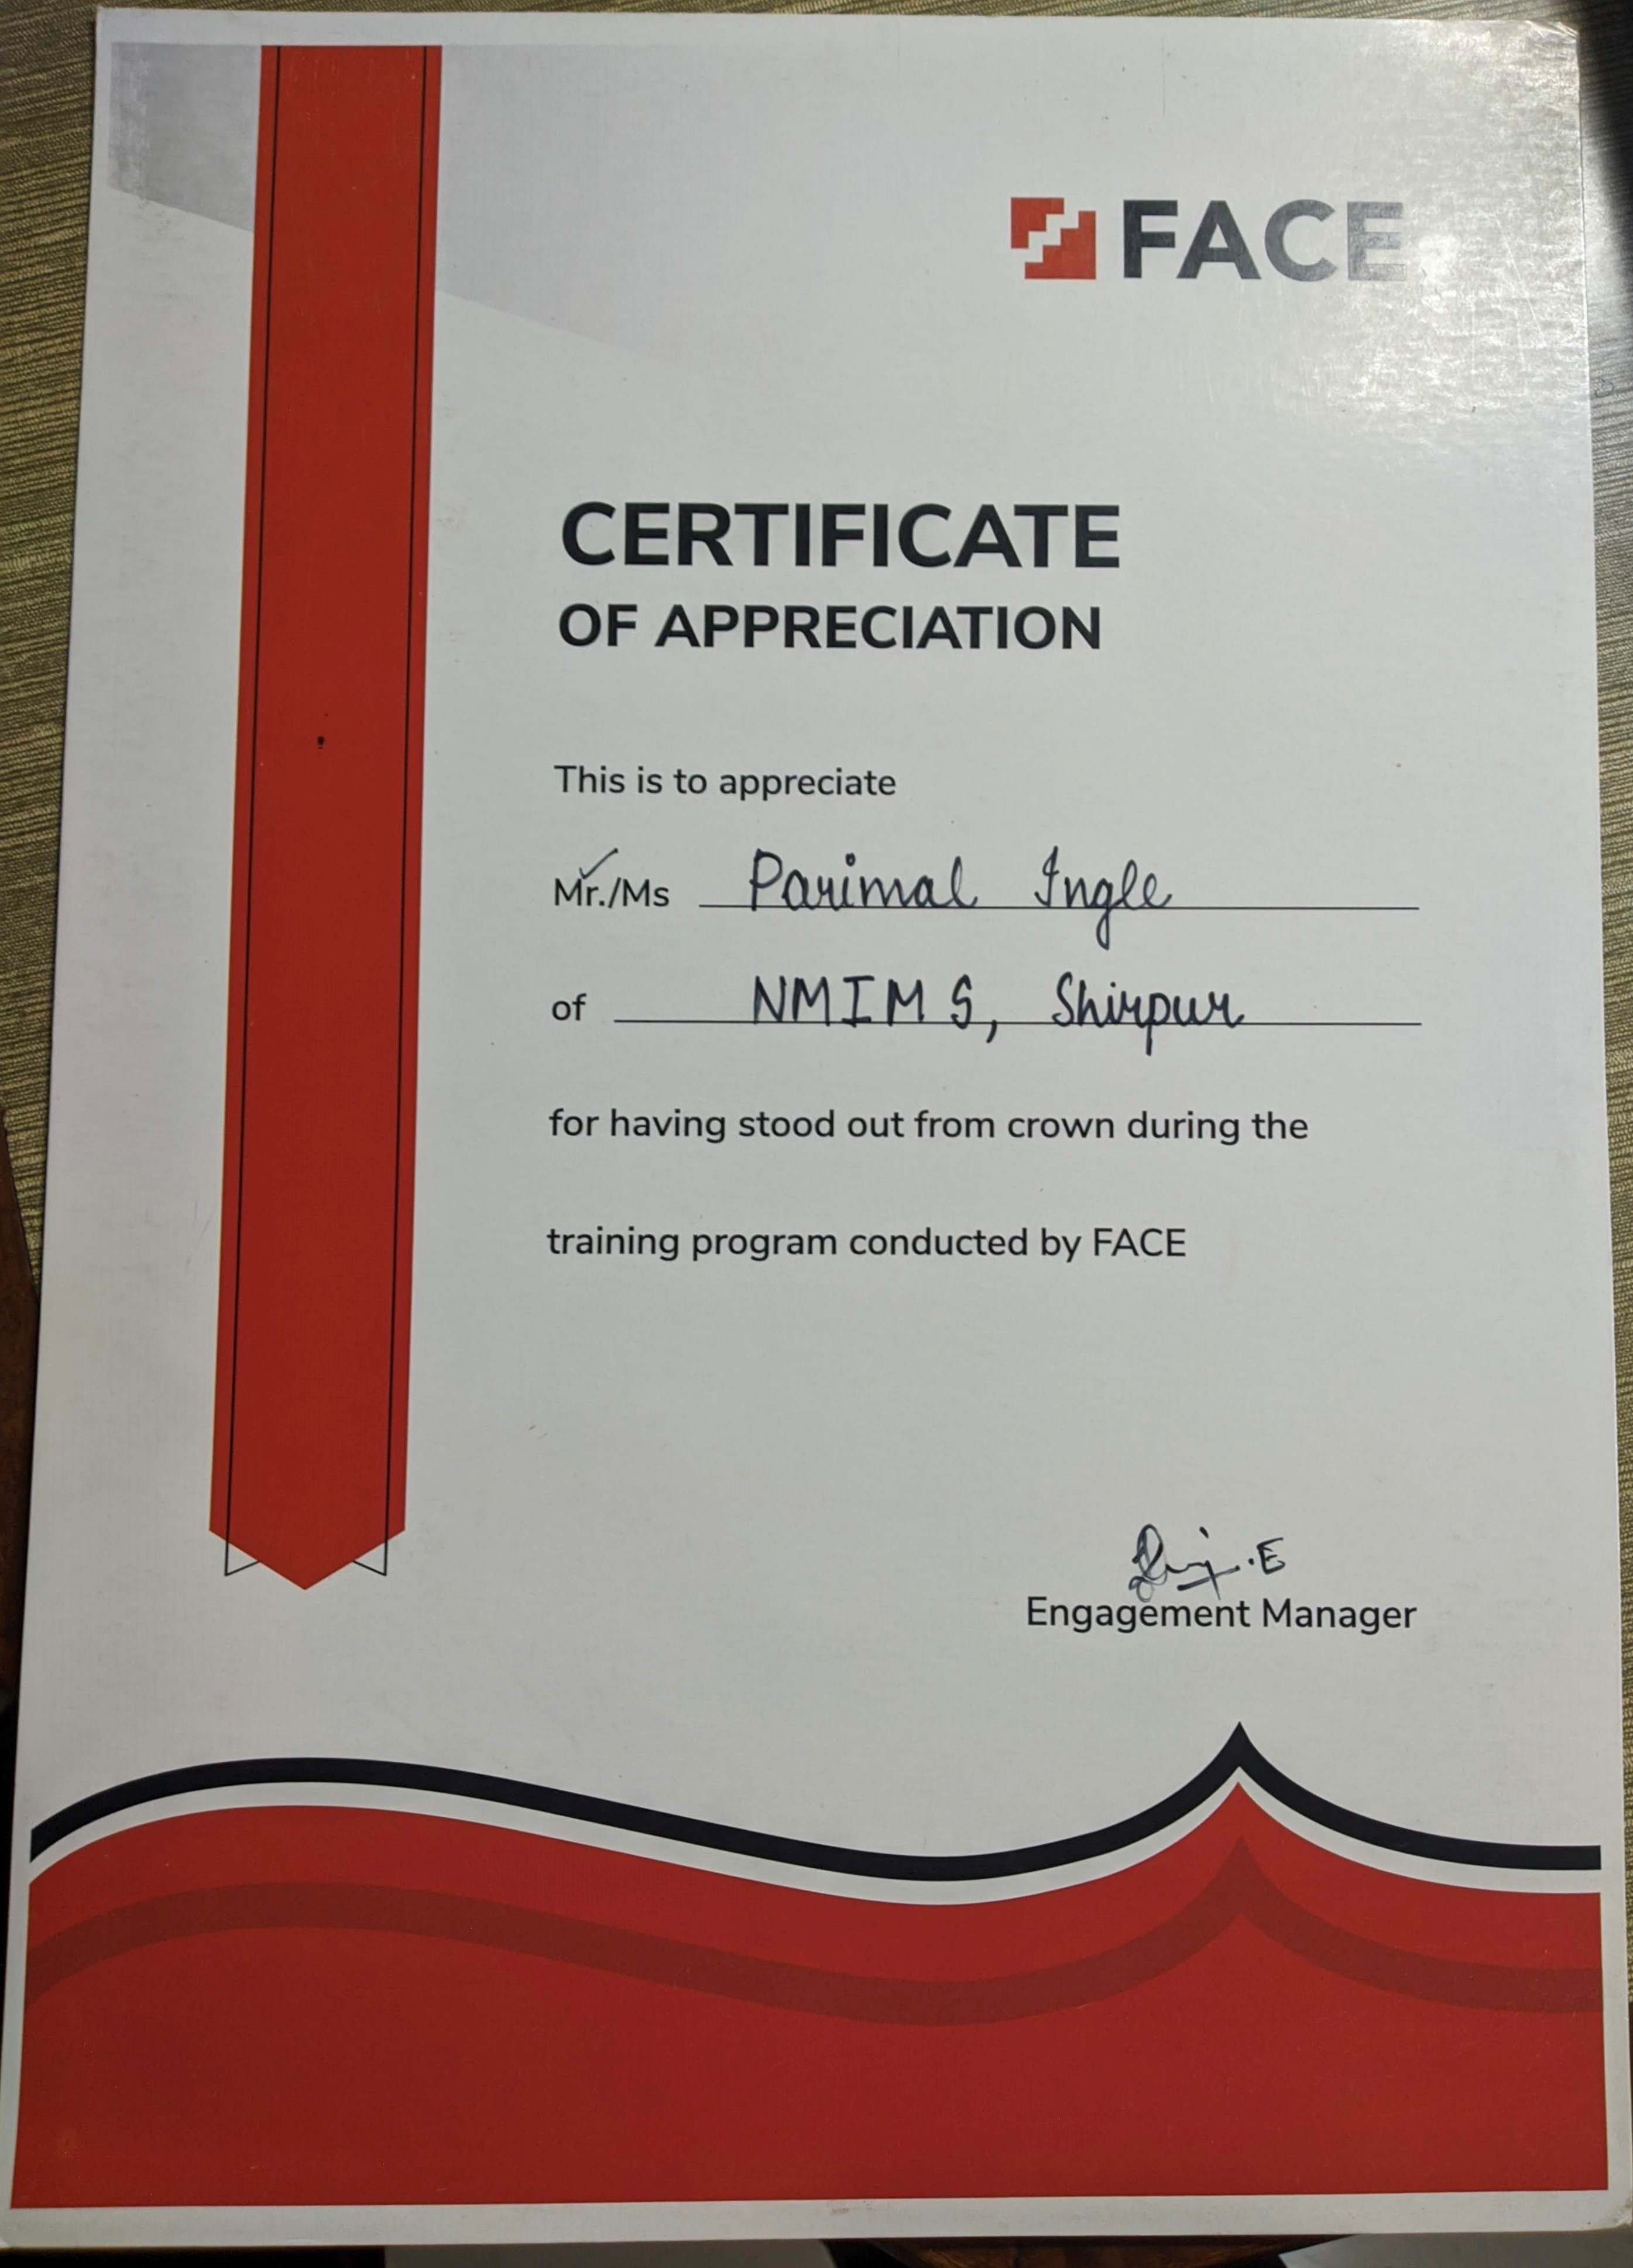 FACE
CERTIFICATE
OF APPRECIATION
This is to appreciate
Mr./Ms Parimal Ingle
of NMIMS, Shirpur
for having stood out from crown during the
training program conducted by FACE
Engagement Manager